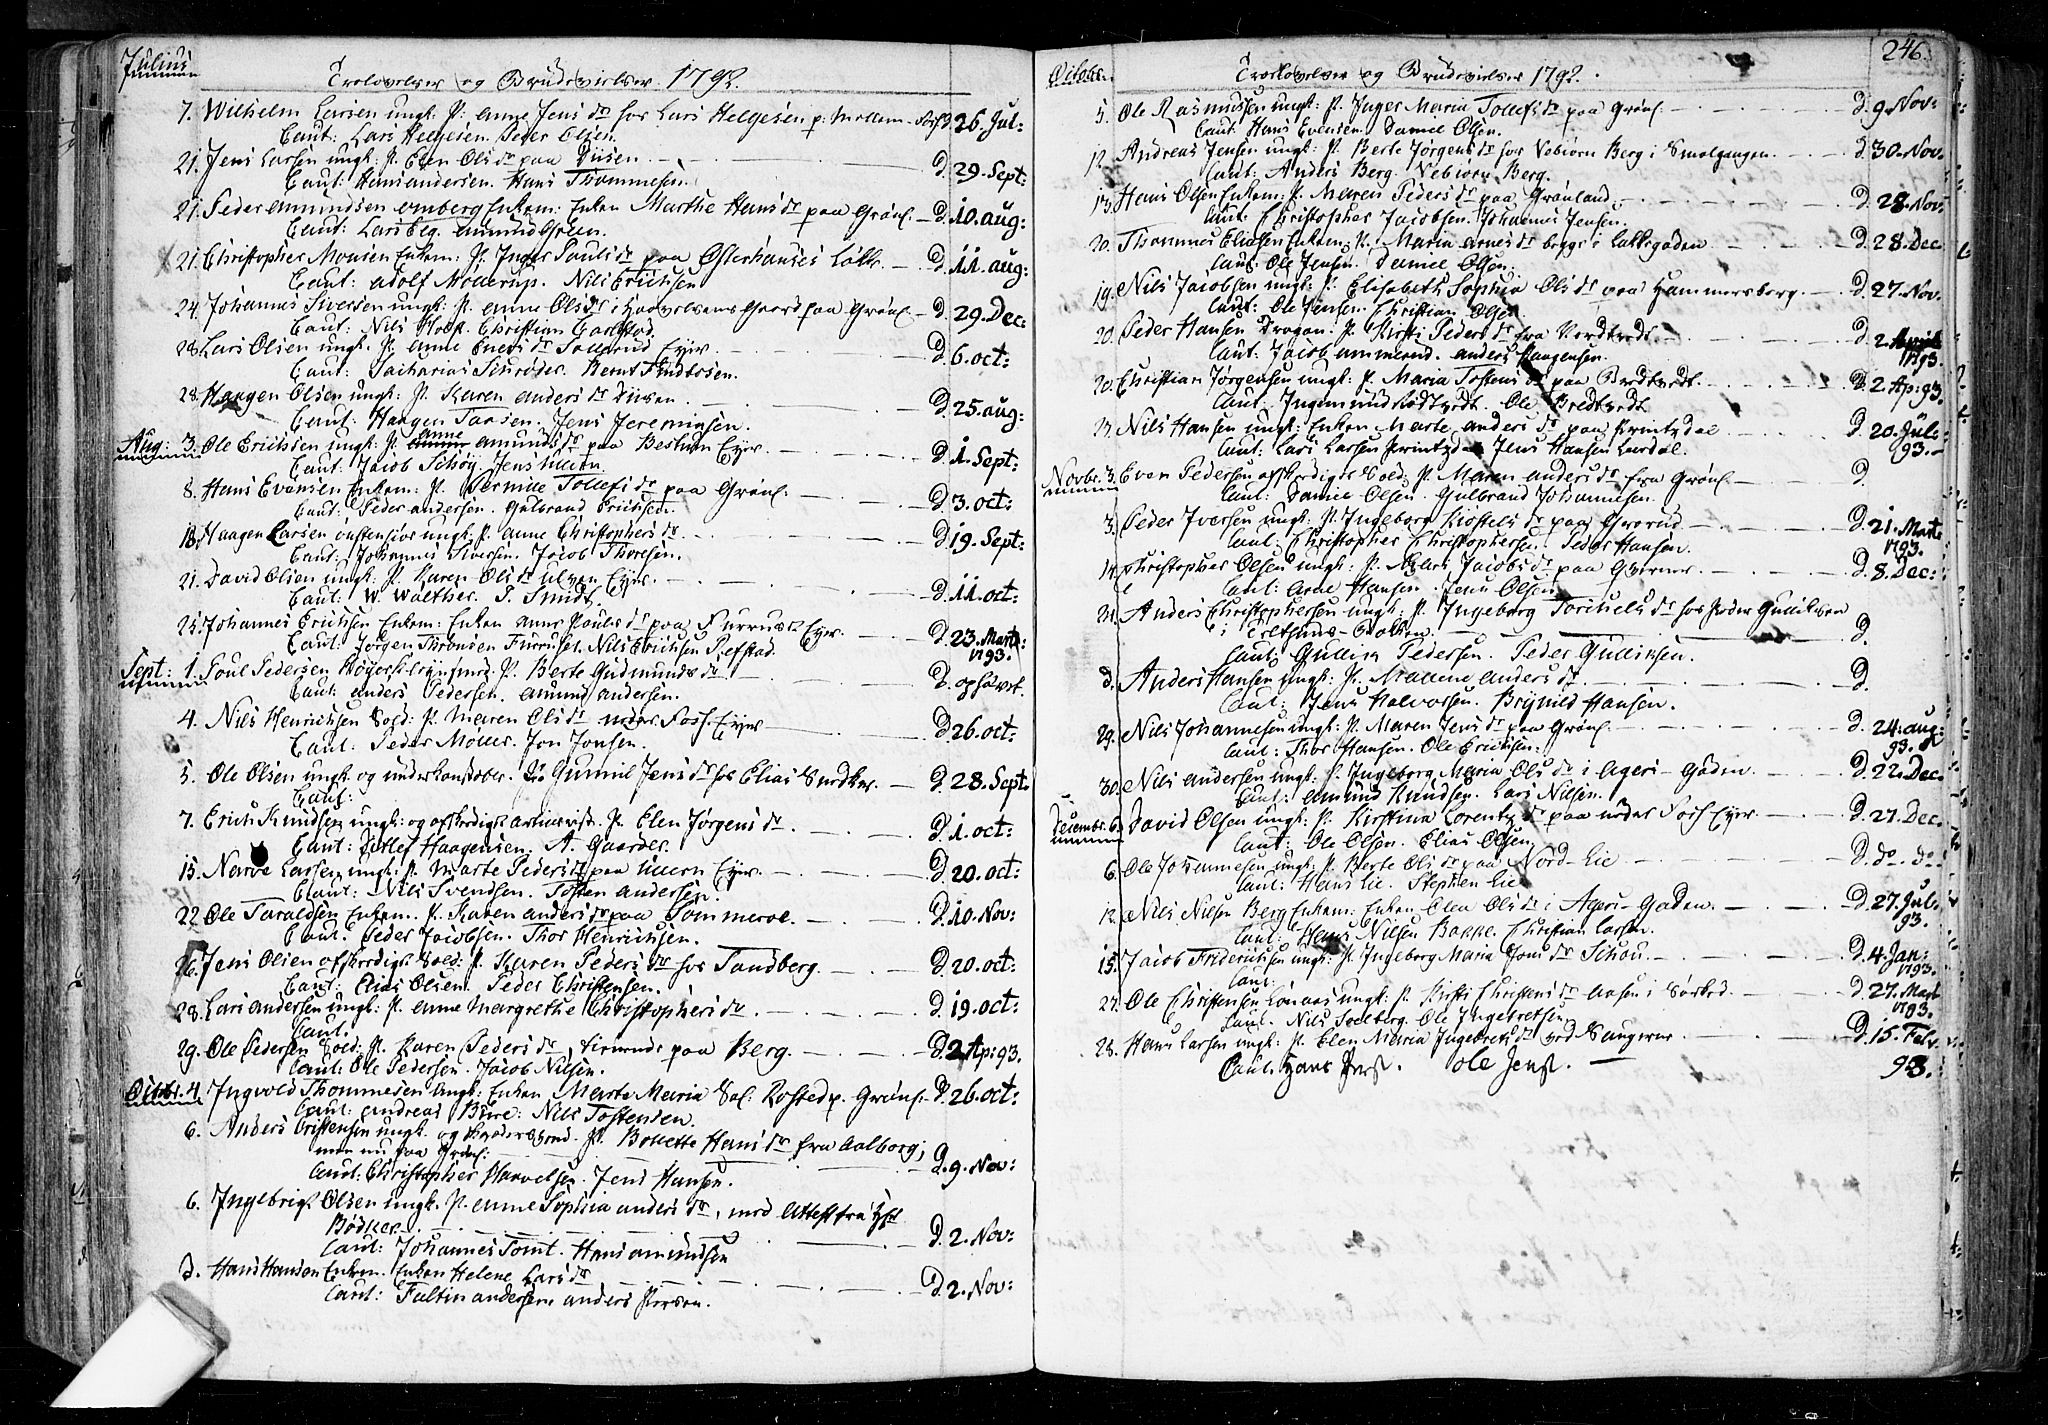 Julius
Trolovelser og Brudevielser 1792.
7. Wilhelm Larsen ungk: P. Anne Jens dr hos Lars Helgesen p: Mollem
d. 26. Jul:
Caut: Lars Helgesen. Peder Olsen.
21. Jens Larsen ungk: P. Elen Ols dr paa Diisen
d. 29. Sept:
Caut: Hans Andersen. Hans Thommesen.
21. Peder Amundsen Omberg Enkem: Enken Marthe Hans dr paa Grønl.
d. 10. Aug:
Caut: Lars Amund Green.
21. Christopher Monsen Enkem: P. Inger Pauls dr paa Osterhauses Løkke
d. 11. Aug:
Caut: Adolf Mollerup. Nils Erichsen
24. Johannes Siversen ungk: P. Anne Ols dr i Gaard paa Grønl.
d. 29. Dec:
Caut: Nils Holk. Christian Carlstad.
28. Lars Olsen ungk. P. Anne Eners dr Tollerud Eyer.
d. 6. oct:
Caut: Zacharias Schrøder. Bernt Knudsen.
28. Haagen Olsen ungk: P. Karen Anders dr Diisen.
d. 25. aug:
Caut: Haagen Jens Jeremiasen.
Aug: 3. Ole Erichsen ungk: P. Anne Amunds dr paa Bestum Eyer.
d. 1. Sept:
Caut: Jacob Schøy Jens
8. Hans Evensen Enkem: P. Pernille Tollefs dr paa Grønl.
d. 3. oct:
Caut: Peder Andersen. Gulbrand Erichsen.
18. Haagen Larsen ungk: P. Anne Christophers dr
d. 19. Sept:
Caut: Johannes Siversen. Jacob Thoresen.
21. David Olsen ungk: P. Karen Ols dr Ulven Eyer.
d. 11. oct:
Caut: W. Walther. P. Smidt.
25. Johannes Erichsen Enkem: Enken Anne Pouls dr paa Furruset Eyer.
d. 23. Marts: 1793.
Caut: Jørgen Thronsen Furruset. Nils Erichsen Refstad.
Sept: 1. Poul Pedersen P. Berte Gudmunds dr
d. ophævet.
Caut: Anders Pedersen. Amund Andersen.
4. Nils Henrichsen Sold: P. Maren Ols dr under Foss. Eyer
d. 26. oct:
Caut: Peder Møller. Jon Jonsen.
5. Ole Olsen ungk. og underkonstabr. P. Gunnil Jens dr hos Elias
d. 28. Sept:
Caut:
7. Erich Knudsen ungk: og afskediget P. Elen Jørgens dr
d. 1. oct:
Caut: Ditlef Haagensen. A. Gaarder.
15. Narve Larsen ungk: P. Marte Peders dr paa Eyer.
d. 20. oct:
Caut: Nils Svendsen. Tosten Andersen.
22 Ole Taraldsen Enkem. P. Karen Anders dr paa Tommeroe.
d. 10. Nov:
Caut. Peder Jacobsen. Thor Henrichsen.
26. Jens Olsen afskediget Sold: P. Karen Peders dr hos Sandberg.
d. 20. oct:
Caut: Elias Olsen. Peder Christensen.
28. Lars Andersen ungk: P. Anne Margrethe Christophers dr
d. 19. oct:
Caut.
29. Ole Pedersen Sold: P. Karen Peders dr, tienende paa Berg.
d. 2 Ap: 93.
Caut: Ole Pedersen. Jacob Nilsen.
Octbr. 4. Ingvold Thommesen ungk: Enken Marte Maria Sal. Rosted p. Grønl.
d. 26. oct:
Caut. Andreas Nils Tostensen.
6. Anders Cristensen ungk. og P. Bollette Hans dr fra Aalborg,
men nu paa Grønl:
d. 9. Nov:
Caut: Christopher Hansen. Jens Hansen.
6. Ingebrigt Olsen ungk. P. Anne Sophia Anders dr, med Attest fra
Bødker
d. 2. Nov:
Caut: Johannes Tomt. Hans Amundsen
d. Hans Hansen Enkem. Enken Helene Lars dr
d. 2. Nov:
Caut: Faltin Andersen. Anders Iversen.
Octobr.
246.
Trolovelser og Brudevielser 1792.
5. Ole Rasmussen ungk: P. Inger Maria Tollefs dr paa Grønl.
d. 9. Nov:
Caut: Hans Evensen. Daniel Olsen.
12. Andreas Jensen ungk: P. Berte Jørgens dr hos Vebiørn Berg i Smalgangen.
d. 30. Nov.
Caut: Anders Berg. Vebiørn Berg.
13. Hans Olsen Enkem: P. Maren Peders dr paa Grønland
d. 28. Nov:
Caut: Christopher Jacobsen. Johannes Jensen.
20. Thommes Eliasen Enkem. P. Maria Arnes dr begge i Lakkegaden
d. 28. Dec
Caut: Ole Jensen. Daniel Olsen.
19. Nils Jacobsen ungk: P. Elisabeth Sophia Ols dr paa Hammersborg.
d. 27. Nov.
Caut: Ole Jensen. Christian Olsen.
20. Peder Hansen Dragon. P. Kirsti Peders dr fra Nordtvedt
d. 2. April 1793.
Caut: Jacob Ammerud. Anders Haagensen.
20. Christian Jørgensen ungk: P. Maria Tostens dr paa Bredtvedt.
d. 2. Ap: 93.
Caut: Ingemund Rødtvedt. Ole Bredtvedt
Nils Hansen ungk: Enken Marte Anders dr paa Printzdal
d. 20. Jul: 93.
Caut: Lars Larsen Printzdal Jens Hansen Lerdal.
Novbr. 3. Even Pedersen afskediget Sold. P. Maren Anders dr fra Grønl.
d.
Caut: Daniel Olsen. Gulbrand Johannesen.
3. Peder Iversen ungk: P. Ingeborg Kiøstels dr paa Grorud
d. 21. Marts 1793.
Caut: Christopher Christophersen. Peder Hansen.
14. Christopher Olsen ungk: P. Jacobs dr paa Qværner
d. 8. Dec:
Caut: Arne Hansen. Jens Olsen
21. Anders Christophersen ungk: P. Ingeborg Torchels dr hos Peder Gulliksen
i
d.
Caut: Gullik Pedersen. Peder Gulliksen.
d. Anders Hansen ungk: P. Mallene Anders dr
d.
Caut: Jens Halvorsen. Brynild Hansen.
29. Nils Johannesen ungk: P. Maren Jens dr paa Grønl.
d. 24. aug: 93.
Caut: Thor Hansen. Ole Erichsen:
30. Nils Andersen ungk: P. Ingeborg Maria Ols dr i Agers-Gaden.
d. 22. Dec.
Caut: Amund Knudsen. Lars Nilsen.
Decembr. 6. David Olsen ungk: P. Kirstina Lorentz dr paa under Foss Eyer
d. 27. Dec.
Caut: Ole Olsen. Elias Olsen
6. Ole Johannesen ungk: P. Berte Ols dr paa Nord-Lie
d. do. do
Caut: Hans Lie. Stephen Lie
12. Nils Nilsen Berg Enkem: Enken Olea Ols dr i Agers-Gaden.
d. 27. Jul: 93.
Caut: Hans Nilsen Bakke. Christian Larsen.
15. Jacob Friderichsen ungk: P. Ingeborg Maria Jons dr Schou
d. 4. Jan: 1793.
Caut:
27. Ole Christensen Lønaas ungk: P. Kirsti Christens dr Aasen i Sørked.
d. 27. Mart 1793.
Caut. Nils Solberg. Ole Ingebretsen
28. Hans Larsen ungk: P. Elen Maria Ingebrets dr ved Saugerne
d. 15. Feb. 93.
Caut. Hans Pers. Ole Jens.